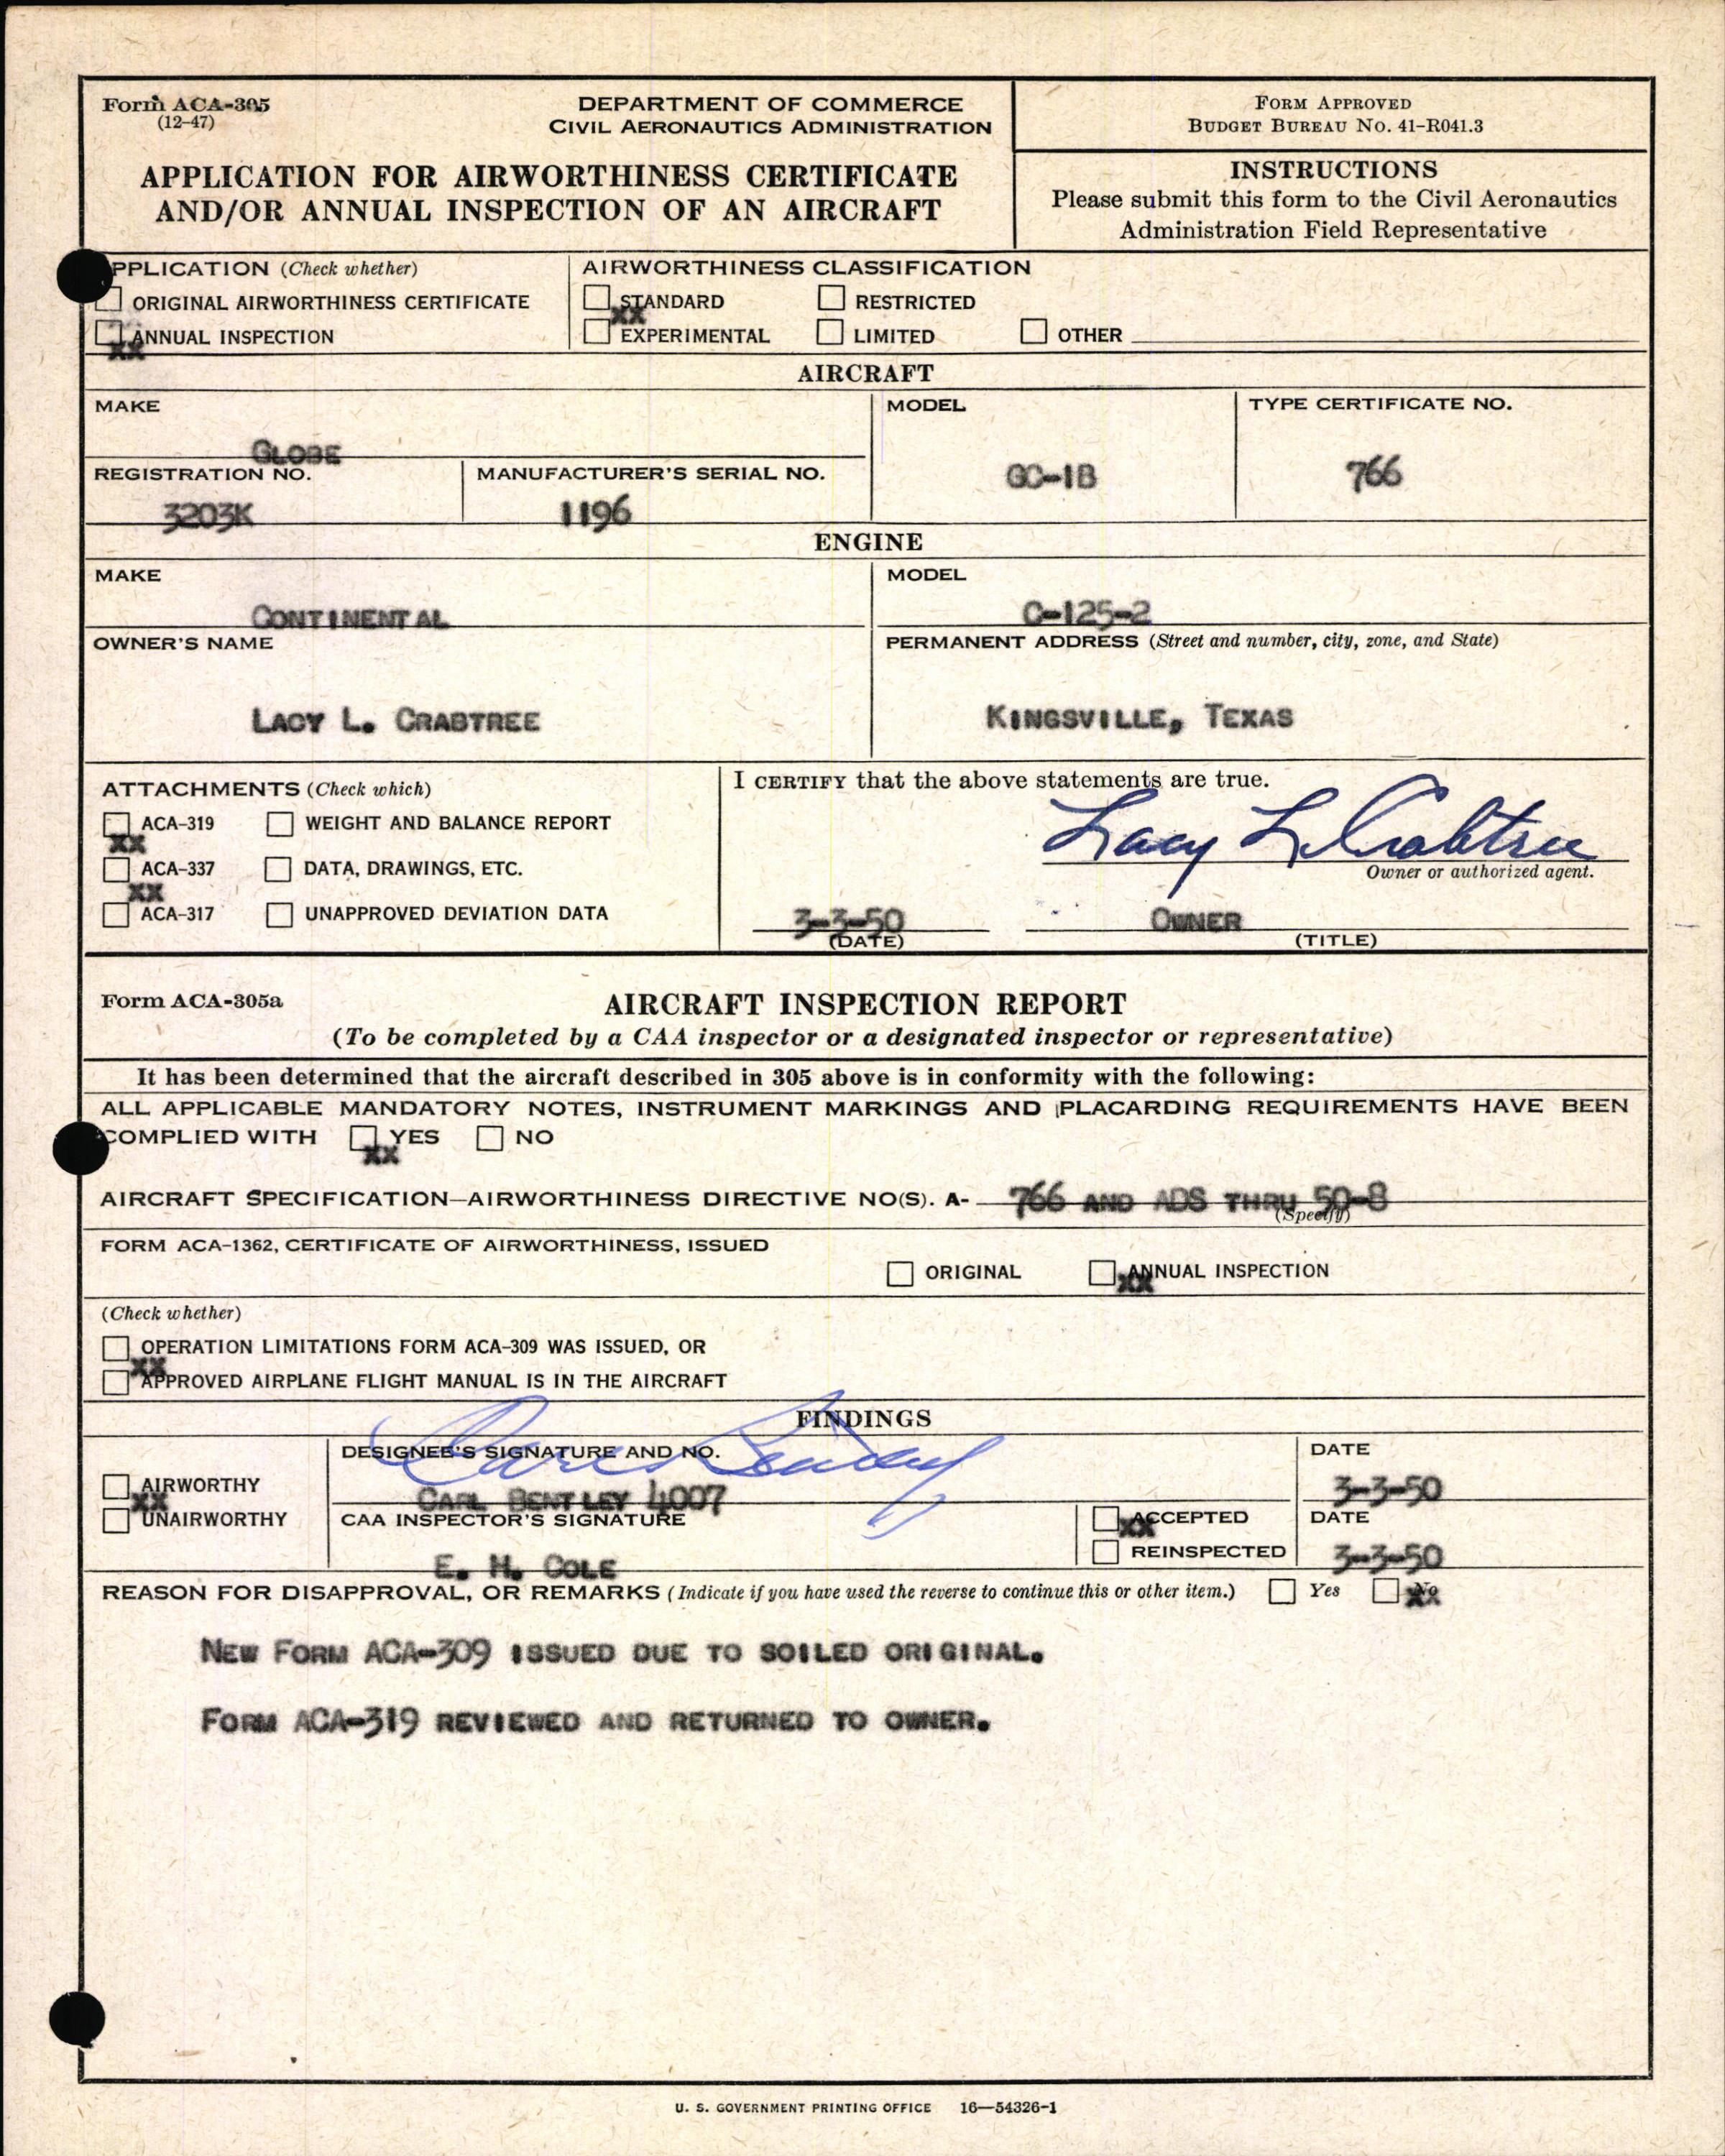 Form ACA-305
(12-47)
DEPARTMENT OF COMMERCE
CIVIL AERONAUTICS ADMINISTRATION
APPLICATION FOR AIRWORTHINESS CERTIFICATE
AND/OR ANNUAL INSPECTION OF AN AIRCRAFT
FORM APPROVED
BUDGET BUREAU No. 41-R041.3
INSTRUCTIONS
Please submit this form to the Civil Aeronautics
Administration Field Representative
PPLICATION (Check whether)
ORIGINAL AIRWORTHINESS CERTIFICATE
XX ANNUAL INSPECTION
AIRWORTHINESS CLASSIFICATION
XX STANDARD RESTRICTED
EXPERIMENTAL LIMITED OTHER
AIRCRAFT
MAKE
GLOBE
MODEL
GC-1B
TYPE CERTIFICATE NO.
766
REGISTRATION NO.
3203K
MANUFACTURER'S SERIAL NO.
1196
ENGINE
MAKE
CONTINENTAL
MODEL
C-125-2
OWNER'S NAME
LACY L. CRABTREE
PERMANENT ADDRESS (Street and number, city, zone, and State)
KINGSVILLE, TEXAS
ATTACHMENTS (Check which)
XX ACA-319 WEIGHT AND BALANCE REPORT
XX ACA-337 DATA, DRAWINGS, ETC.
ACA-317 UNAPPROVED DEVIATION DATA
I CERTIFY that the above statements are true.
Lacy L Crabtree
Owner or authorized agent.
3-3-50 OWNER
(DATE) (TITLE)
Form ACA-305a
AIRCRAFT INSPECTION REPORT
(To be completed by a CAA inspector or a designated inspector or representative)
It has been determined that the aircraft described in 305 above is in conformity with the following:
ALL APPLICABLE MANDATORY NOTES, INSTRUMENT MARKINGS AND PLACARDING REQUIREMENTS HAVE BEEN
COMPLIED WITH XX YES NO
AIRCRAFT SPECIFICATION—AIRWORTHINESS DIRECTIVE NO(S). A- 766 AND ADS THRU 50-8
(Specify)
FORM ACA-1362, CERTIFICATE OF AIRWORTHINESS, ISSUED
ORIGINAL XX ANNUAL INSPECTION
(Check whether)
XX OPERATION LIMITATIONS FORM ACA-309 WAS ISSUED, OR
APPROVED AIRPLANE FLIGHT MANUAL IS IN THE AIRCRAFT
FINDINGS
XX AIRWORTHY
UNAIRWORTHY
DESIGNEE'S SIGNATURE AND NO.
Carl Bentley
CARL BENTLEY 4007
DATE
3-3-50
CAA INSPECTOR'S SIGNATURE
E. H. COLE
XX ACCEPTED
REINSPECTED
DATE
3-3-50
REASON FOR DISAPPROVAL, OR REMARKS (Indicate if you have used the reverse to continue this or other item.) Yes XX No
NEW FORM ACA-309 ISSUED DUE TO SOILED ORIGINAL.
FORM ACA-319 REVIEWED AND RETURNED TO OWNER.
U. S. GOVERNMENT PRINTING OFFICE 16—54326-1